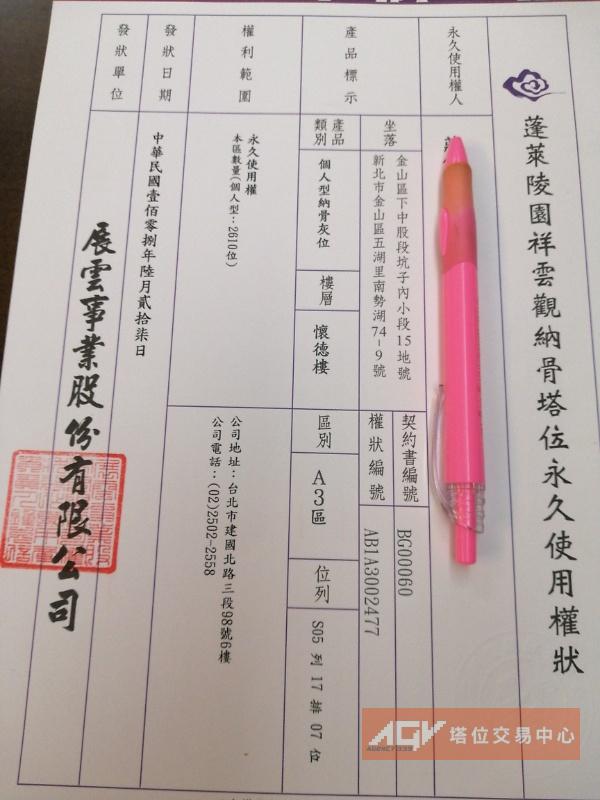 蓬萊陵園祥雲觀納骨塔位永久使用權狀
永久使用權人
產品標示
坐落
金山區下中股段坑子內小段15地號
新北市金山區五湖里南勢湖74-9號
契約書編號
BG00060
權狀編號
AB1A3002477
產品類別
個人型納骨灰位
樓層
懷德樓
區別
A3區
位列
S05 列 17 排 07 位
權利範圍
永久使用權
本區數量(個人型:2610位)
公司地址:台北市建國北路三段98號6樓
公司電話:(02)2502-2558
發狀日期
中華民國壹佰零捌年陸月貳拾柒日
發狀單位
展雲事業股份有限公司
AGV 塔位交易中心